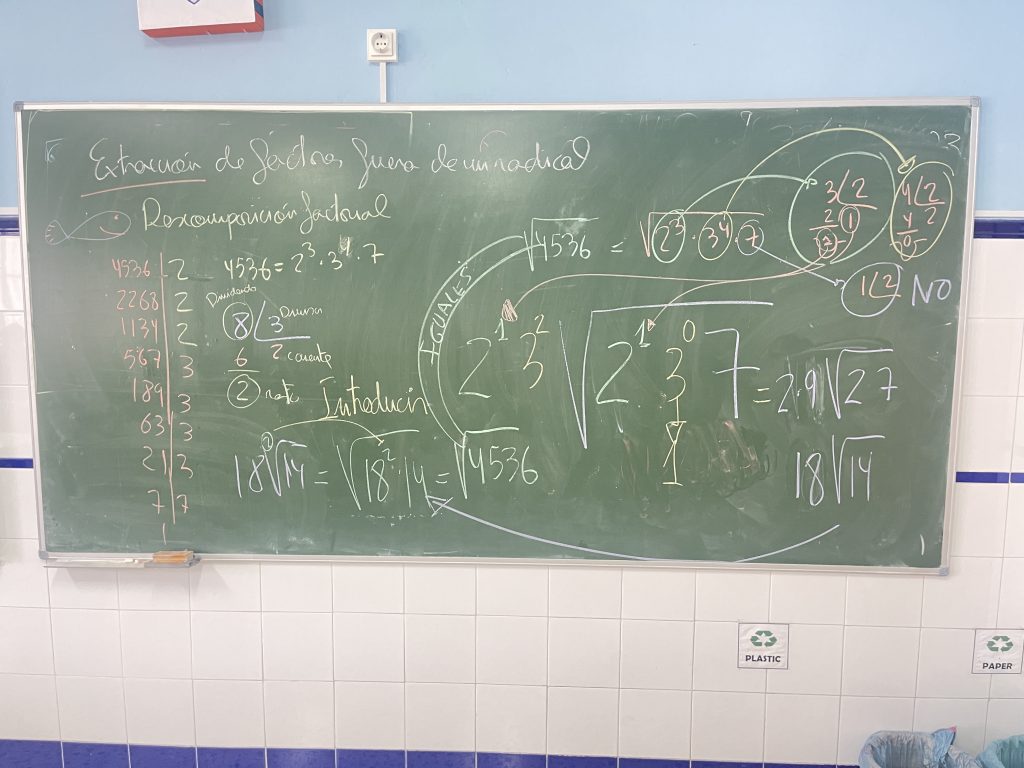 Extracción de factores fuera de un radical
Descomposición factorial
4536 | 2
2268 | 2
1134 | 2
567 | 3
189 | 3
63 | 3
21 | 3
7 | 7
1
4536 = 2³ · 3⁴ · 7
Dividendo
8 3 Divisor
6 2 cociente
2 resto
Introducir
18√14 = √18² · 14 = √4536
IGUALES
√4536 = √2³ · 3⁴ · 7
3 2
2 1
1
4 2
4 2
0
1 2 NO
2¹ 3² √2¹ 3⁰ 7 = 2·9√2 7
1
18√14
PLASTIC
PAPER